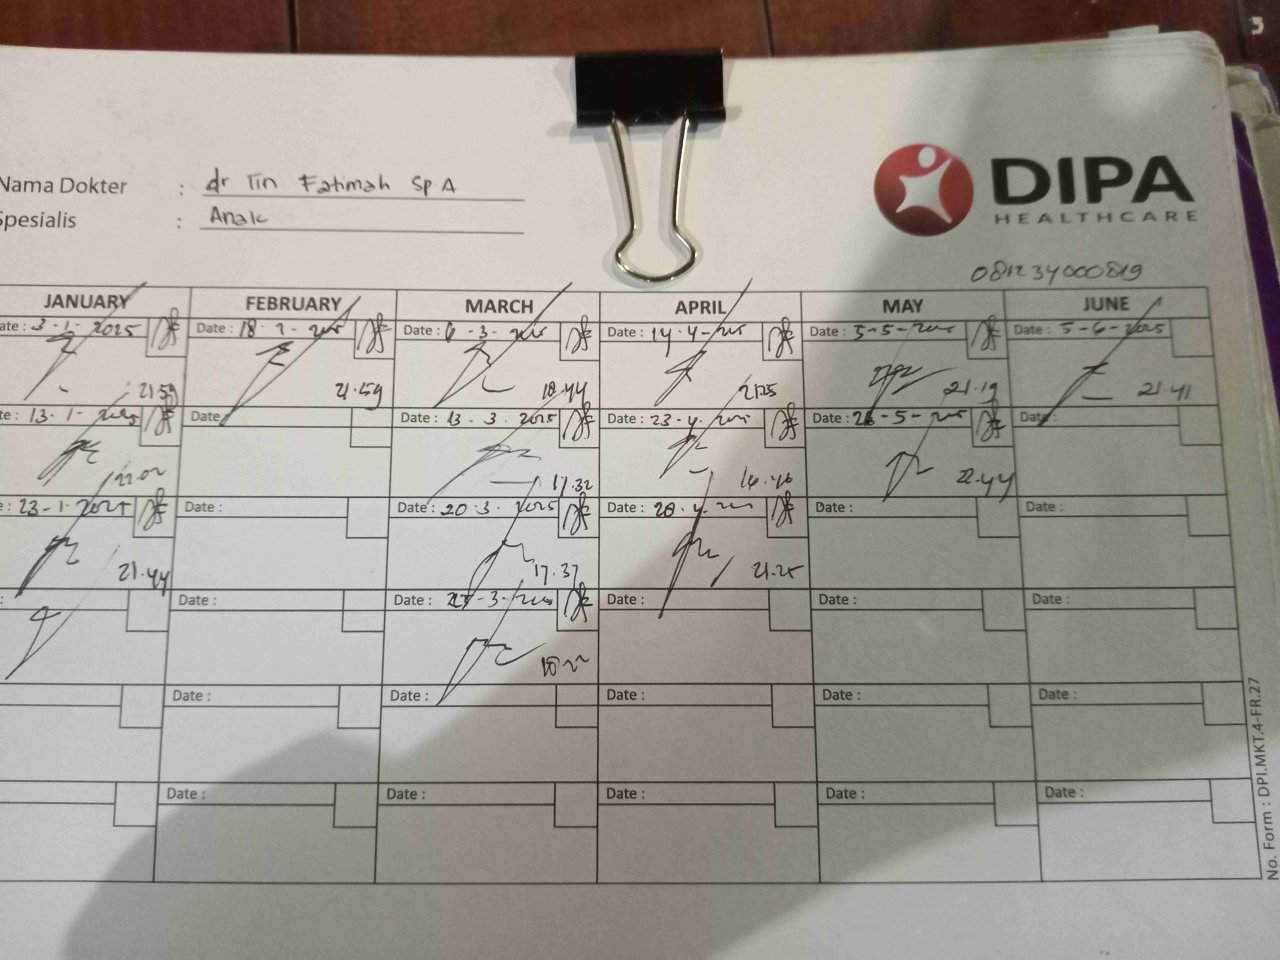 Nama Dokter : dr Iin Fatimah Sp.A
Spesialis : Anak
DIPA
HEALTHCARE
081234000819
JANUARY FEBRUARY MARCH APRIL MAY JUNE
ate : 3-1-2025 Date : 18-2-2025 Date : -3-2025 Date : 14-4-2025 Date : 5-5-2025 Date : 5-6-2025
21.59 21.59 18.44 21.25 21.19 21.41
te : 13-1-2025 Date : Date : 13-3-2025 Date : 23-4-2025 Date : 26-5-2025 Date :
22.02 17.32 16.46 22.44
: 23-1-2025 Date : Date : 20-3-2025 Date : 28-4-2025 Date : Date :
21.44 17.37 21.25
: Date : Date : 27-3-2025 Date : Date : Date :
18.22
Date : Date : Date : Date : Date :
Date : Date : Date : Date : Date :
No. Form : DPI.MKT.4-FR.27